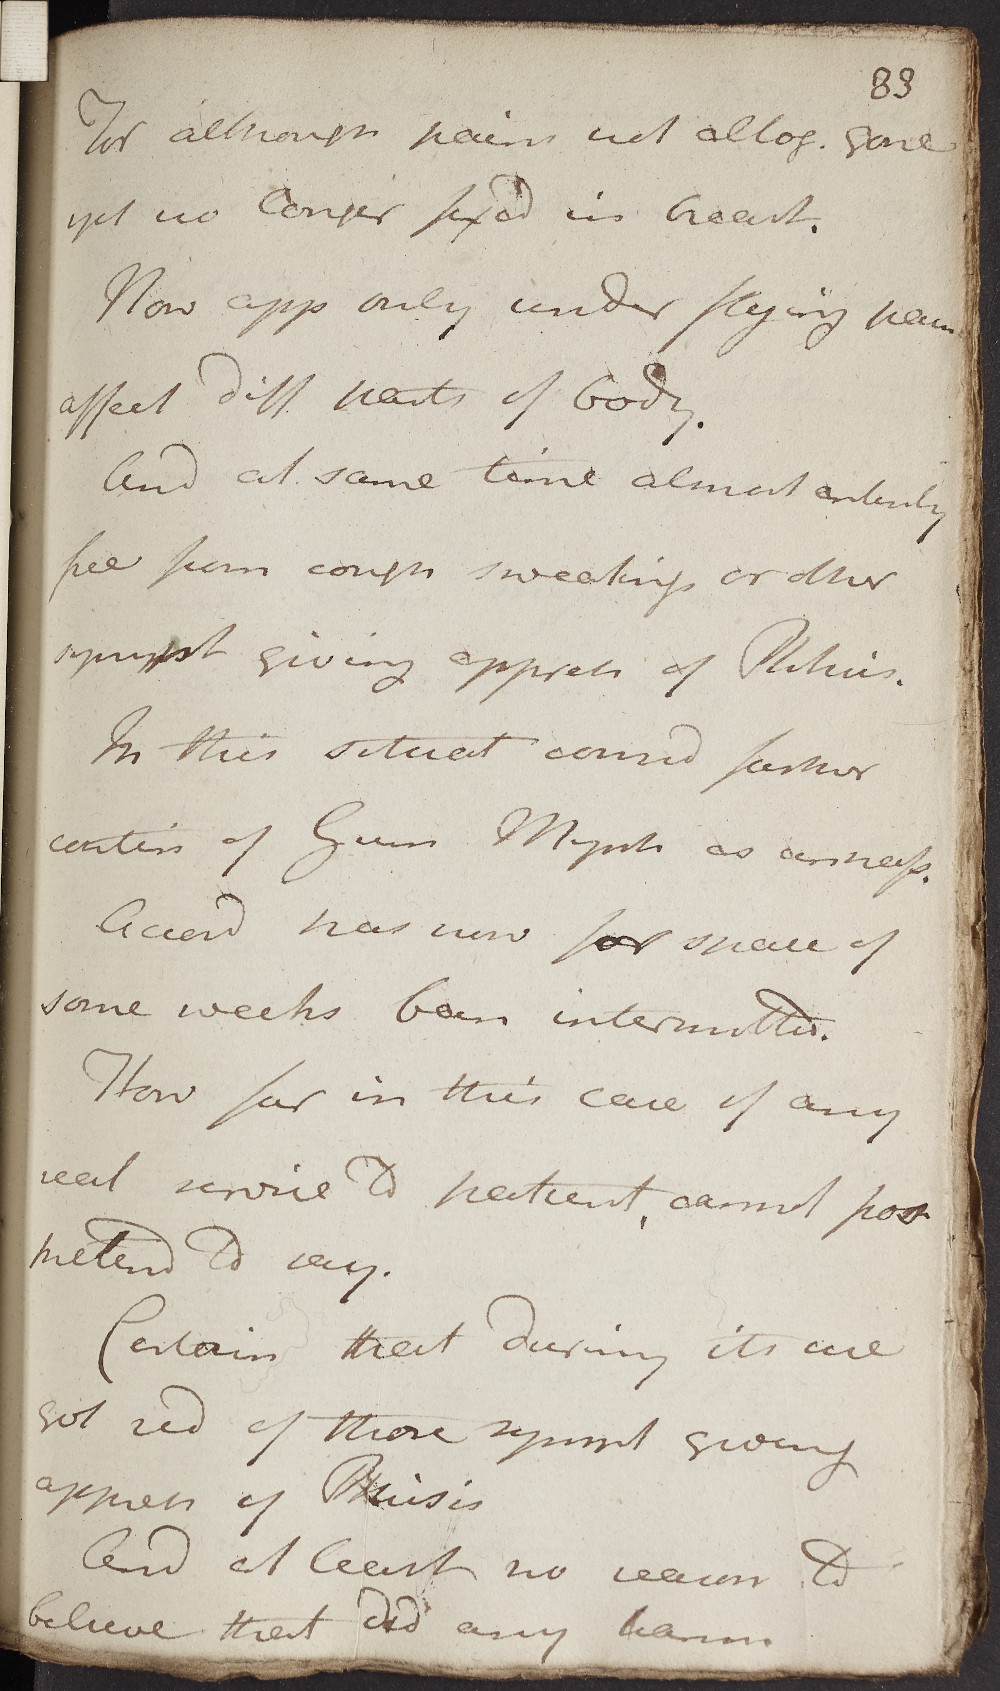 83
For although pains not altog. gone
yet no longer fix'd in breast.
Now app only under flying pain
affect diff parts of body.
And at same time almost entirely
free from cough sweatings or other
sympt giving appreh of Phthisis.
In this situat considd farther
contin of Gum Myrrh as unness.
Accord has now for space of
some weeks been intermitted.
How far in this case of any
real service to patient, cannot pos
pretend to say.
Certain that during its use
got rid of those sympt giving
appreh of Pthisis
And at least no reason to
believe that did any harm